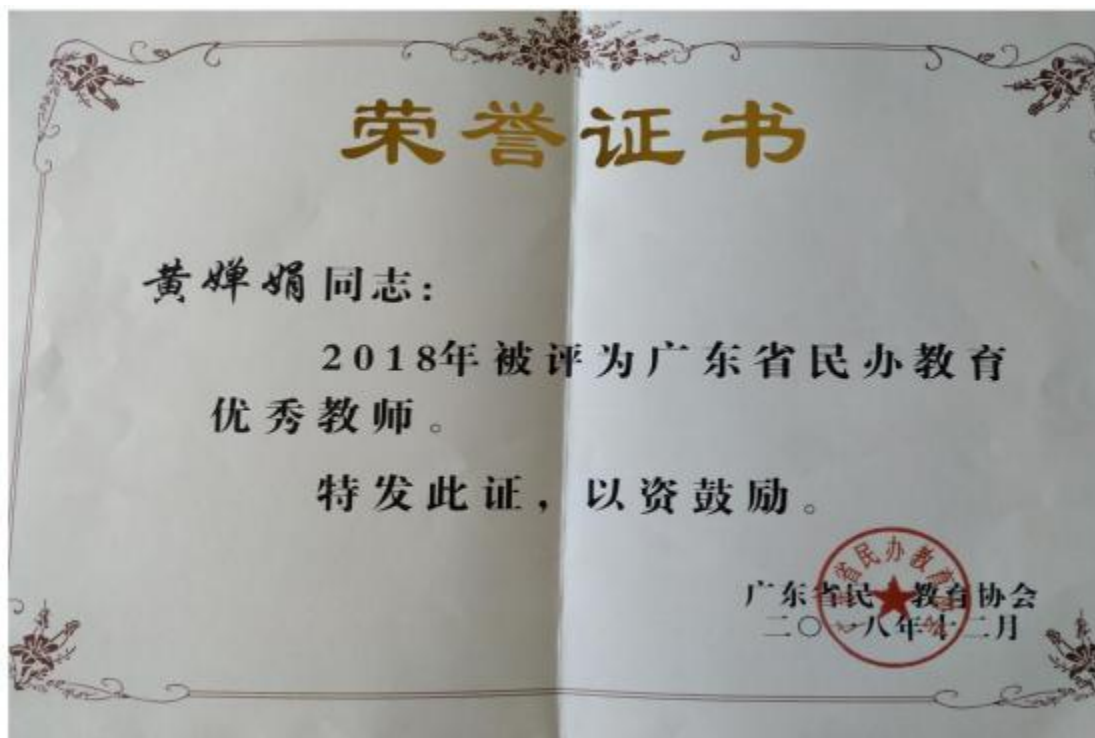 荣誉证书
黄婵娟同志：
2018年被评为广东省民办教育
优秀教师。
特发此证，以资鼓励。
广东省民办教育协会
二〇一八年十二月